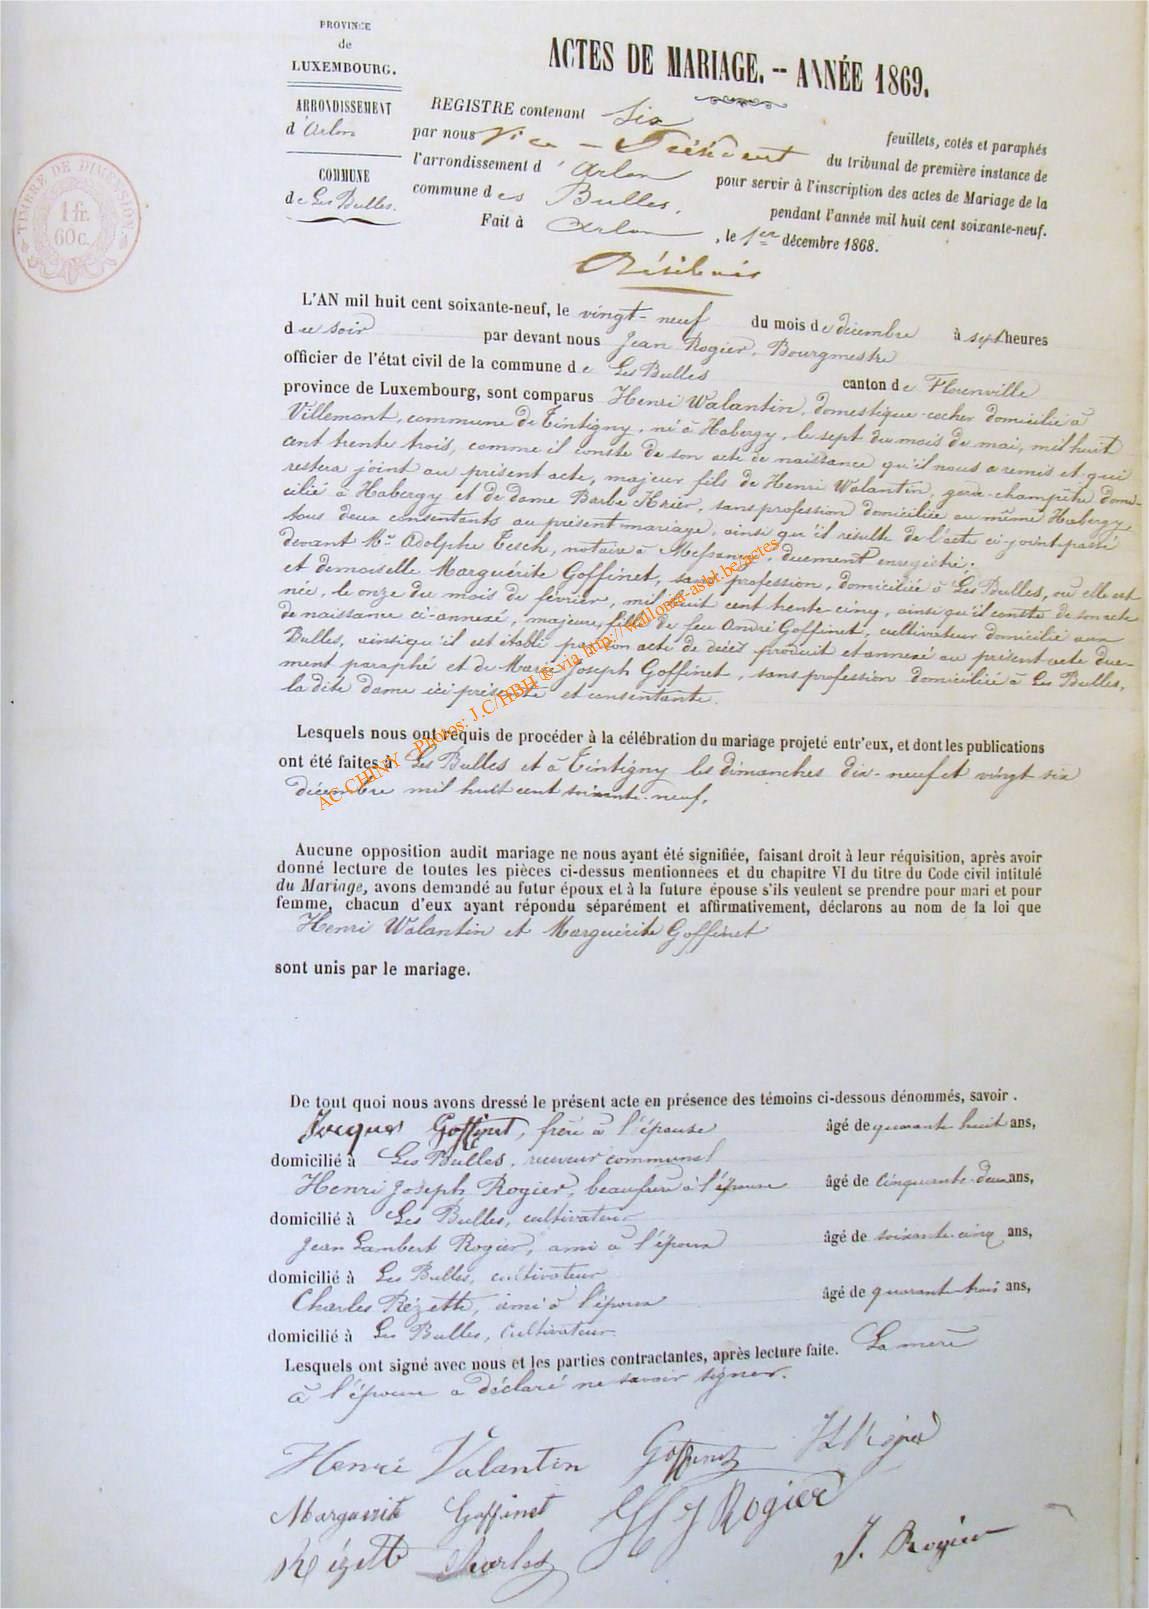 PROVINCE
de
LUXEMBOURG.
ARRONDISSEMENT
d'Arlon
COMMUNE
de Les Bulles.
TIMBRE DE DIMENSION.
1 fr.
60 c.
ACTES DE MARIAGE. -- ANNÉE 1869.
REGISTRE contenant six feuillets, cotés et paraphés
par nous Vice-Président du tribunal de première instance de
l'arrondissement d'Arlon pour servir à l'inscription des actes de Mariage de la
commune des Bulles, pendant l'année mil huit cent soixante-neuf.
Fait à Arlon, le 1er décembre 1868.
L'AN mil huit cent soixante-neuf, le vingt-neuf du mois de décembre à sept heures
du soir par devant nous Jean Rogier, Bourgmestre
officier de l'état civil de la commune de Les Bulles canton de Florenville
province de Luxembourg, sont comparus Henri Walantin, domestique-cocher domicilié à
Villemont, commune de Tintigny, né à Habergy, le sept du mois de mai, mil huit
cent trente trois, comme il conste de son acte de naissance qu'il nous a remis et qui
restera joint au présent acte, majeur fils de Henri Walantin, garde-champêtre domi-
cilié à Habergy et de dame Barbe Krier, sans profession domiciliée au même Habergy,
tous deux consentants au présent mariage, ainsi qu'il résulte de l'acte ci-joint passé
devant Mr Adolphe Tesch, notaire à Messancy, duement enregistré;
et demoiselle Marguérite Goffinet, sans profession, domiciliée à Les Bulles, où elle est
née, le onze du mois de février, mil huit cent trente-cinq, ainsi qu'il conste de son acte
de naissance ci-annexé, majeure, fille de feu André Goffinet, cultivateur domicilié aux
Bulles, ainsi qu'il est établi par son acte de décès produit et annexé au présent acte due-
ment paraphé et de Marie Joseph Goffinet, sans profession domiciliée à Les Bulles,
la dite dame ici présente et consentante.
Lesquels nous ont requis de procéder à la célébration du mariage projeté entr'eux, et dont les publications
ont été faites à Les Bulles et à Tintigny les dimanches dix-neuf et vingt six
décembre mil huit cent soixante-neuf.
AC-CHINY Photos: J.C/HBH @ via http://wallonia-asbl.be/actes
Aucune opposition audit mariage ne nous ayant été signifiée, faisant droit à leur réquisition, après avoir
donné lecture de toutes les pièces ci-dessus mentionnées et du chapitre VI du titre du Code civil intitulé
du Mariage, avons demandé au futur époux et à la future épouse s'ils veulent se prendre pour mari et pour
femme, chacun d'eux ayant répondu séparément et affirmativement, déclarons au nom de la loi que
Henri Walantin et Marguérite Goffinet
sont unis par le mariage.
De tout quoi nous avons dressé le présent acte en présence des témoins ci-dessous dénommés, savoir.
Jacques Goffinet, frère à l'épouse âgé de quarante huit ans,
domicilié à Les Bulles, receveur communal
Henri Joseph Rogier, beaufrère à l'épouse âgé de cinquante-deux ans,
domicilié à Les Bulles, cultivateur
Jean Lambert Rogier, ami à l'époux âgé de soixante-cinq ans,
domicilié à Les Bulles, cultivateur
Charles Rézette, ami à l'époux âgé de quarante trois ans,
domicilié à Les Bulles, cultivateur
Lesquels ont signé avec nous et les parties contractantes, après lecture faite. La mère
à l'épouse a déclaré ne savoir signer.
Henri Valantin Goffinet JL Rogier
Marguerite Goffinet H J Rogier
Rézette Charles J. Rogier